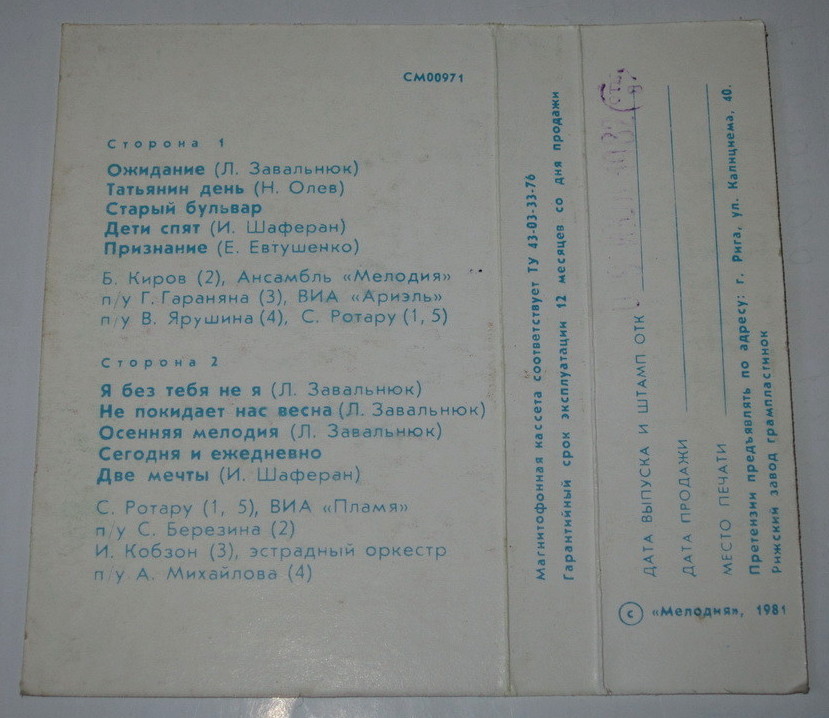 СМ00971
Сторона 1
Ожидание (Л. Завальнюк)
Татьянин день (Н. Олев)
Старый бульвар
Дети спят (И. Шаферан)
Признание (Е. Евтушенко)
Б. Киров (2), Ансамбль «Мелодия»
п/у Г. Гараняна (3), ВИА «Ариэль»
п/у В. Ярушина (4), С. Ротару (1, 5)
Сторона 2
Я без тебя не я (Л. Завальнюк)
Не покидает нас весна (Л. Завальнюк)
Осенняя мелодия (Л. Завальнюк)
Сегодня и ежедневно
Две мечты (И. Шаферан)
С. Ротару (1, 5), ВИА «Пламя»
п/у С. Березина (2)
И. Кобзон (3), эстрадный оркестр
п/у А. Михайлова (4)
Магнитофонная кассета соответствует ТУ 43-03-33-76
Гарантийный срок эксплуатации 12 месяцев со дня продажи
ДАТА ВЫПУСКА И ШТАМП ОТК
ДАТА ПРОДАЖИ
МЕСТО ПЕЧАТИ
Претензии предъявлять по адресу: г. Рига, ул. Калнциема, 40.
Рижский завод грампластинок
© «Мелодия», 1981